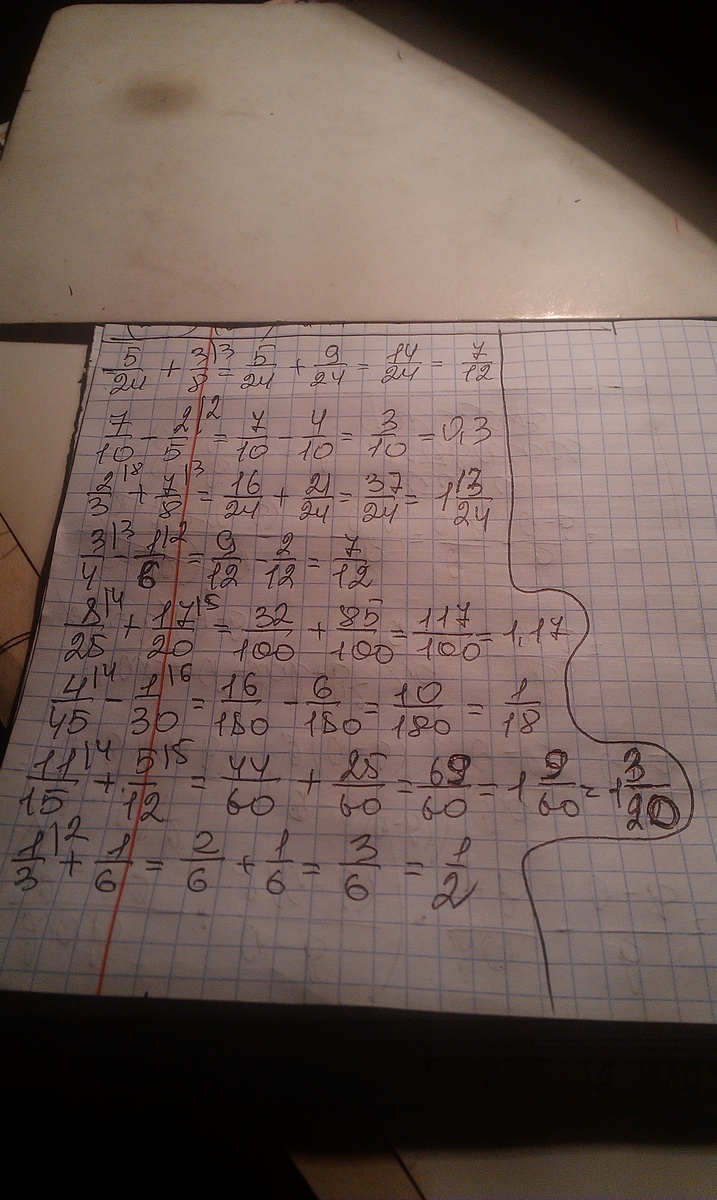 5/24 + 3/8|3 = 5/24 + 9/24 = 14/24 = 7/12
7/10 - 2/5|2 = 7/10 - 4/10 = 3/10 = 0,3
2/3|8 + 7/8|3 = 16/24 + 21/24 = 37/24 = 1 13/24
3/4|3 - 1/6|2 = 9/12 - 2/12 = 7/12
8/25|4 + 17/20|5 = 32/100 + 85/100 = 117/100 = 1,17
4/45|4 - 1/30|6 = 16/180 - 6/180 = 10/180 = 1/18
11/15|4 + 5/12|5 = 44/60 + 25/60 = 69/60 = 1 9/60 = 1 3/20
1/3|2 + 1/6 = 2/6 + 1/6 = 3/6 = 1/2